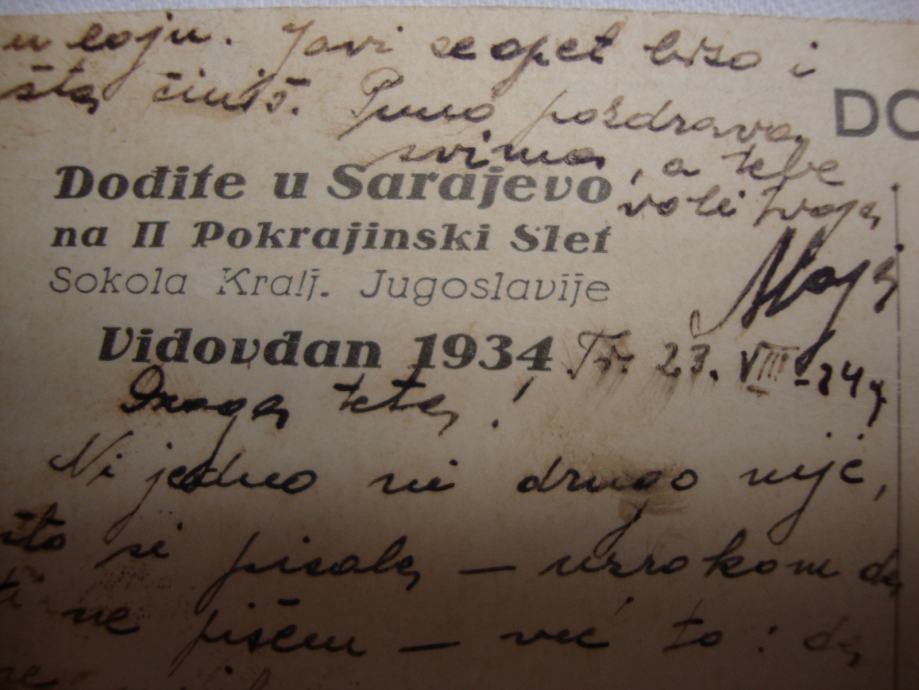 u boju. Javi se opet brzo i
šta činiš. Puno pozdrava
svima, a tebe
voli tvoja
DO
Dođite u Sarajevo
na II Pokrajinski Slet
Sokola Kralj. Jugoslavije
Vidovdan 1934
23. VIII -
Draga teta!
Ni jedno ni drugo nije,
što si pisala — uzrokom da
ti ne pišem — već to: da
ne